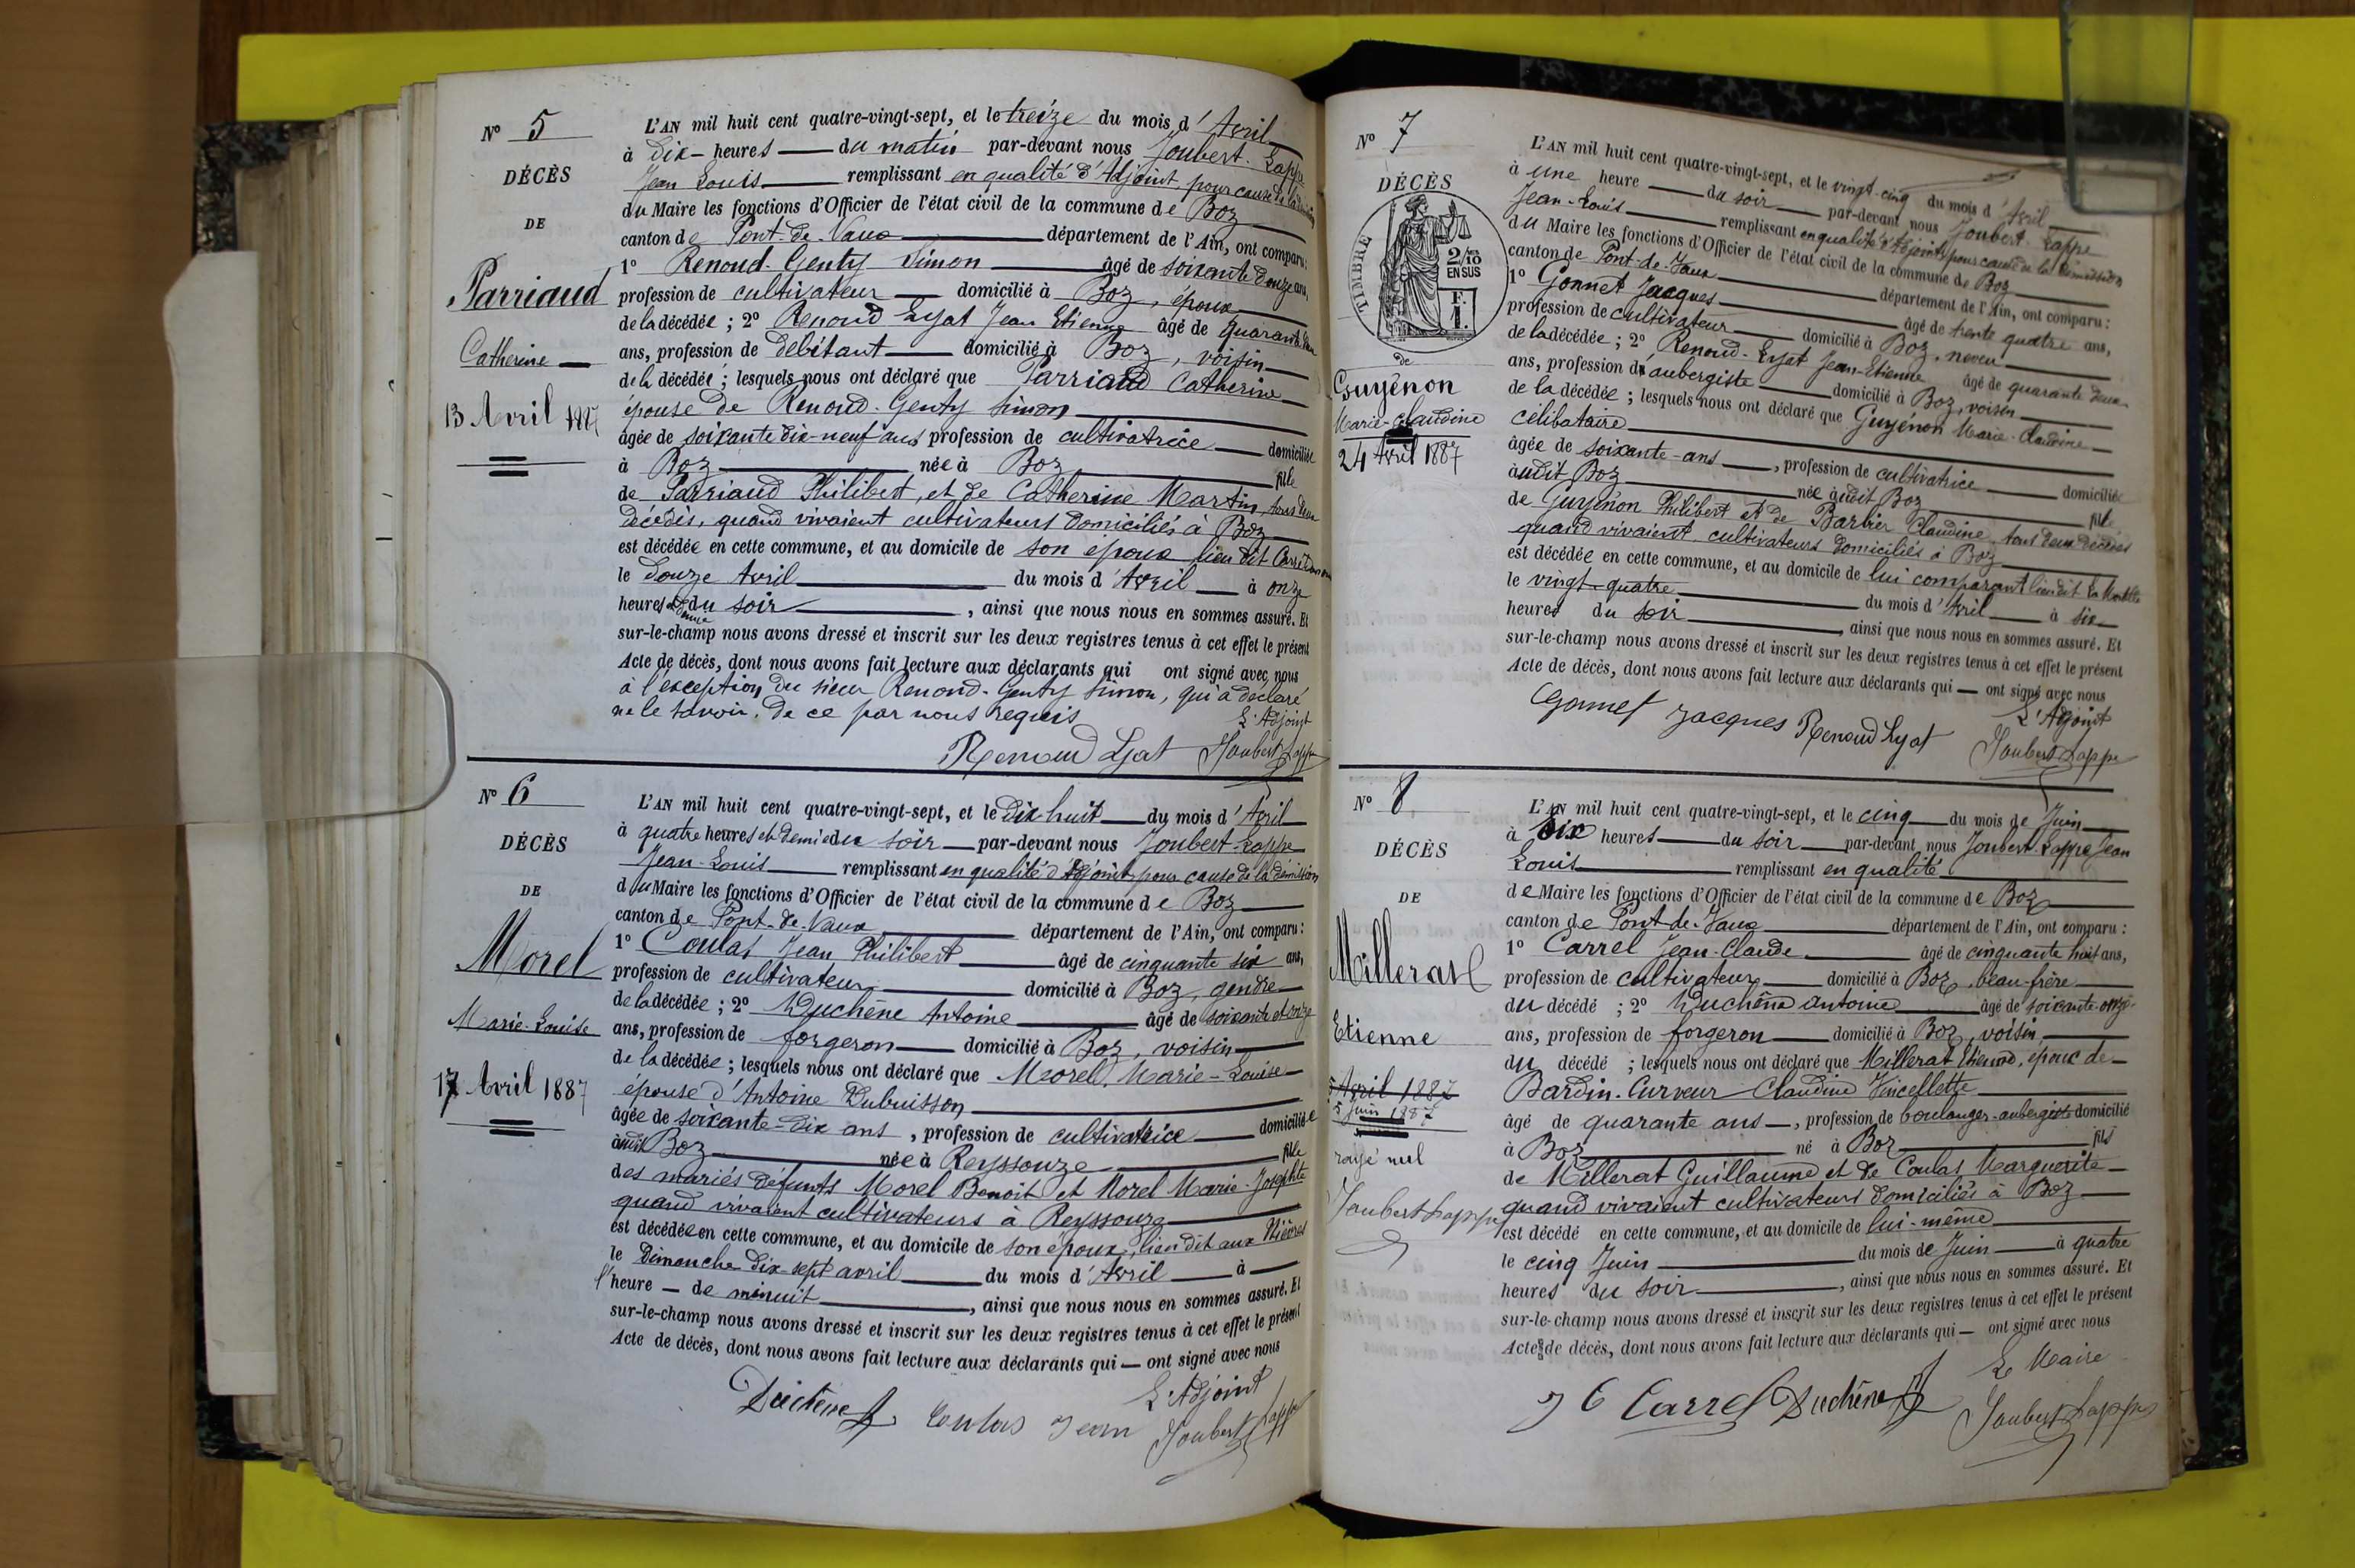 N° 5
DÉCÈS
DE
Parriaud
Catherine
13 Avril 1887
L'AN mil huit cent quatre-vingt-sept, et le treize du mois d'Avril
à dix heures du matin par-devant nous Joubert-Lappe
Jean Louis remplissant en qualité d'Adjoint pour cause de la
du Maire les fonctions d'Officier de l'état civil de la commune de Boz
canton de Pont-de-Vaux département de l'Ain, ont comparu :
1° Renoud-Genty Simon âgé de soixante douze ans,
profession de cultivateur domicilié à Boz, époux
de la décédée ; 2° Renoud Lyat Jean Etienne âgé de quarante
ans, profession de débitant domicilié à Boz, voisin
de la décédée ; lesquels nous ont déclaré que Parriaud Catherine
épouse de Renoud-Genty Simon
âgée de soixante dix-neuf ans profession de cultivatrice domiciliée
à Boz née à Boz fille
de Parriaud Philibert, et de Catherine Martin, tous deux
décédés, quand vivaient cultivateurs domiciliés à Boz
est décédée en cette commune, et au domicile de son époux lieu dit
le douze Avril du mois d'Avril à onze
heures du soir, ainsi que nous nous en sommes assuré. Et
sur-le-champ nous avons dressé et inscrit sur les deux registres tenus à cet effet le présent
Acte de décès, dont nous avons fait lecture aux déclarants qui ont signé avec nous
à l'exception du sieur Renoud-Genty Simon, qui a déclaré
ne le savoir. de ce par nous requis
L'Adjoint
Renoud Lyat Joubert Lappe
N° 6
DÉCÈS
DE
Morel
Marie-Louise
17 Avril 1887
L'AN mil huit cent quatre-vingt-sept, et le dix-huit du mois d'Avril
à quatre heures et demie du soir par-devant nous Joubert-Lappe
Jean-Louis remplissant en qualité d'Adjoint pour cause de la démission
du Maire les fonctions d'Officier de l'état civil de la commune de Boz
canton de Pont-de-Vaux département de l'Ain, ont comparu :
1° Coulas Jean Philibert âgé de cinquante six ans,
profession de cultivateur domicilié à Boz, gendre
de la décédée ; 2° Duchêne Antoine âgé de soixante et onze
ans, profession de forgeron domicilié à Boz, voisin
de la décédée ; lesquels nous ont déclaré que Morel, Marie-Louise
épouse d'Antoine Dubuisson
âgée de soixante-dix ans, profession de cultivatrice domiciliée
audit Boz née à Reyssouze fille
des mariés défunts Morel Benoit et Morel Marie-Josephte
quand vivaient cultivateurs à Reyssouze
est décédée en cette commune, et au domicile de son époux, lieu dit aux
le Dimanche dix-sept avril du mois d'Avril à
l'heure de minuit, ainsi que nous nous en sommes assuré. Et
sur-le-champ nous avons dressé et inscrit sur les deux registres tenus à cet effet le présent
Acte de décès, dont nous avons fait lecture aux déclarants qui ont signé avec nous
L'Adjoint
Duchêne Coulas Jean Joubert Lappe
N° 7
DÉCÈS
TIMBRE
2/10 EN SUS
F. I.
de
Guyénon
Marie-Claudine
24 Avril 1887
L'AN mil huit cent quatre-vingt-sept, et le vingt-cinq du mois d'Avril
à une heure du soir par-devant nous Joubert-Lappe
Jean-Louis remplissant en qualité d'Adjoint pour cause de la démission
du Maire les fonctions d'Officier de l'état civil de la commune de Boz
canton de Pont-de-Vaux département de l'Ain, ont comparu :
1° Gonnet Jacques âgé de trente quatre ans,
profession de cultivateur domicilié à Boz, neveu
de la décédée ; 2° Renoud-Lyat Jean-Etienne âgé de quarante deux
ans, profession d'aubergiste domicilié à Boz, voisin
de la décédée ; lesquels nous ont déclaré que Guyénon Marie-Claudine
célibataire
âgée de soixante-ans, profession de cultivatrice domiciliée
audit Boz née audit Boz fille
de Guyénon Philibert et de Barbier Claudine, tous deux décédés
quand vivaient cultivateurs domiciliés à Boz
est décédée en cette commune, et au domicile de lui comparant lieu dit
le vingt-quatre du mois d'Avril à six
heures du soir, ainsi que nous nous en sommes assuré. Et
sur-le-champ nous avons dressé et inscrit sur les deux registres tenus à cet effet le présent
Acte de décès, dont nous avons fait lecture aux déclarants qui ont signé avec nous
L'Adjoint
Gonnet Jacques Renoud Lyat Joubert Lappe
N° 8
DÉCÈS
DE
Millerat
Etienne
5 Avril 1887
5 Juin 1887
rayé nul
Joubert Lappe
L'AN mil huit cent quatre-vingt-sept, et le cinq du mois de Juin
à six heures du soir par-devant nous Joubert-Lappe Jean
Louis remplissant en qualité
de Maire les fonctions d'Officier de l'état civil de la commune de Boz
canton de Pont-de-Vaux département de l'Ain, ont comparu :
1° Carrel Jean-Claude âgé de cinquante huit ans,
profession de cultivateur domicilié à Boz, beau-frère
du décédé ; 2° Duchêne Antoine âgé de soixante-onze
ans, profession de forgeron domicilié à Boz, voisin
du décédé ; lesquels nous ont déclaré que Millerat Etienne, époux de
Bardin-Curveur Claudine Vincellette
âgé de quarante ans, profession de boulanger-aubergiste domicilié
à Boz né à Boz fils
de Millerat Guillaume et de Coulas Marguerite
quand vivaient cultivateurs domiciliés à Boz
est décédé en cette commune, et au domicile de lui-même
le cinq Juin du mois de Juin à quatre
heures du soir, ainsi que nous nous en sommes assuré. Et
sur-le-champ nous avons dressé et inscrit sur les deux registres tenus à cet effet le présent
Acte de décès, dont nous avons fait lecture aux déclarants qui ont signé avec nous
Le Maire
J C Carrel Duchêne Joubert Lappe